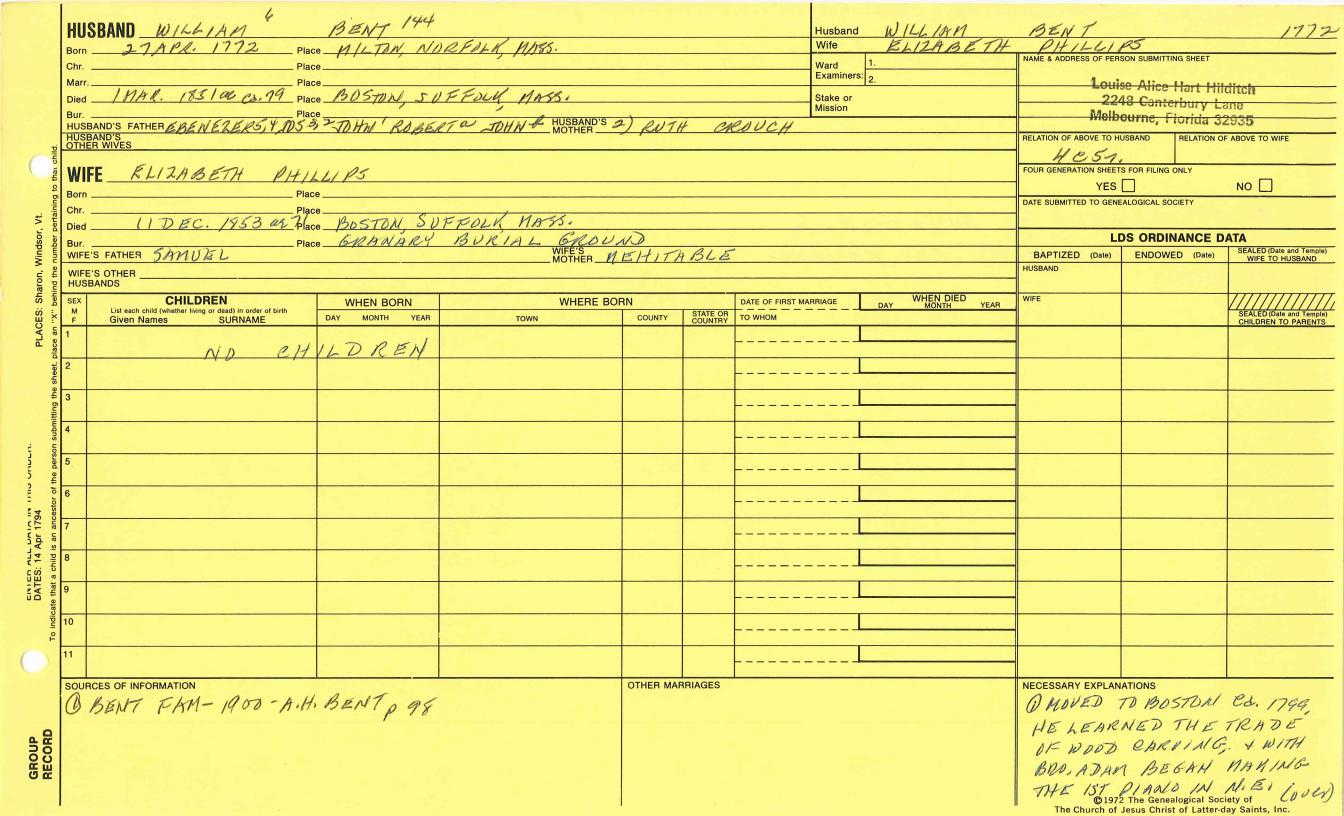 HUSBAND WILLIAM 6 BENT 144
Born 27 APR. 1772 Place MILTON, NORFOLK, MASS.
Chr. Place
Marr. Place
Died 1 MAR. 1851 ae ca. 79 Place BOSTON, SUFFOLK, MASS.
Bur. Place
HUSBAND'S FATHER EBENEZER5, 4, JOS 3, 2 JOHN1 ROBERTa JOHN HUSBAND'S MOTHER 2) RUTH CROUCH
HUSBAND'S OTHER WIVES
WIFE ELIZABETH PHILLIPS
Born Place
Chr. Place
Died 11 DEC. 1853 ae Place BOSTON, SUFFOLK, MASS.
Bur. Place GRANARY BURIAL GROUND
WIFE'S FATHER SAMUEL WIFE'S MOTHER MEHITABLE
WIFE'S OTHER HUSBANDS
Husband WILLIAM BENT 1772
Wife ELIZABETH PHILLIPS
Ward Examiners: 1.
2.
Stake or Mission
NAME & ADDRESS OF PERSON SUBMITTING SHEET
Louise Alice Hart Hilditch
2248 Canterbury Lane
Melbourne, Florida 32935
RELATION OF ABOVE TO HUSBAND RELATION OF ABOVE TO WIFE
4C5r.
FOUR GENERATION SHEETS FOR FILING ONLY
YES NO
DATE SUBMITTED TO GENEALOGICAL SOCIETY
LDS ORDINANCE DATA
BAPTIZED (Date) ENDOWED (Date) SEALED (Date and Temple) WIFE TO HUSBAND
HUSBAND
WIFE
SEALED (Date and Temple) CHILDREN TO PARENTS
SEX M F
CHILDREN
List each child (whether living or dead) in order of birth
Given Names SURNAME
WHEN BORN
DAY MONTH YEAR
WHERE BORN
TOWN COUNTY STATE OR COUNTRY
DATE OF FIRST MARRIAGE
TO WHOM
WHEN DIED
DAY MONTH YEAR
1
NO CHILDREN
2
3
4
5
6
7
8
9
10
11
SOURCES OF INFORMATION
① BENT FAM- 1900 - A.H. BENT p 98
OTHER MARRIAGES
NECESSARY EXPLANATIONS
① MOVED TO BOSTON Ca. 1799,
HE LEARNED THE TRADE
OF WOOD CARVING, & WITH
BRO. ADAM BEGAN MAKING
THE 1ST PIANO IN N.E. (over)
©1972 The Genealogical Society of
The Church of Jesus Christ of Latter-day Saints, Inc.
PLACES: Sharon, Windsor, Vt.
ENTER ALL DATA IN THIS ORDER:
DATES: 14 Apr 1794
To indicate that a child is an ancestor of the person submitting the sheet, place an "X" behind the number pertaining to that child.
GROUP
RECORD